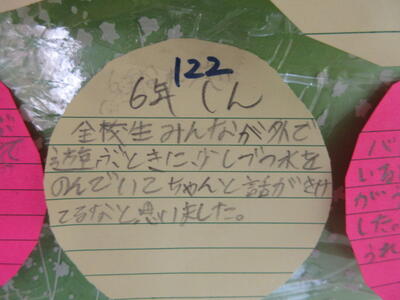 122
6年 しん
全校生みんなが外で
遊ぶときに少しづつ水を
のんでいてちゃんと話がきけ
てるなと思いました。